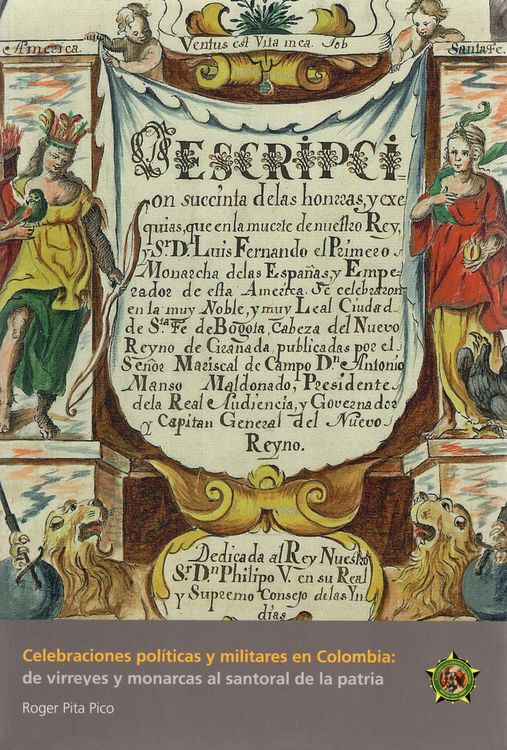 America.
Ventus est Vita mea. Job
Santa Fe.
DESCRIPCI
on succinta delas honrras, y exe
quias, que en la muerte de nuestro Rey,
y Sr. D. Luis Fernando el Primero
Monarcha de las Españas, y Empe-
rador de esta America. Se celebraron
en la muy Noble, y muy Leal Ciudad
de Sta Fe de Bogota, Cabeza del Nuevo
Reyno de Granada publicadas por el
Señor Mariscal de Campo Dn Antonio
Manso Maldonado, Presidente
de la Real Audiencia, y Governador
y Capitan General del Nuevo
Reyno.
Dedicada al Rey Nuestro
Sr. Dn Philipo V. en su Real
y Supremo Consejo de las Yn
dias
Celebraciones políticas y militares en Colombia:
de virreyes y monarcas al santoral de la patria
Roger Pita Pico